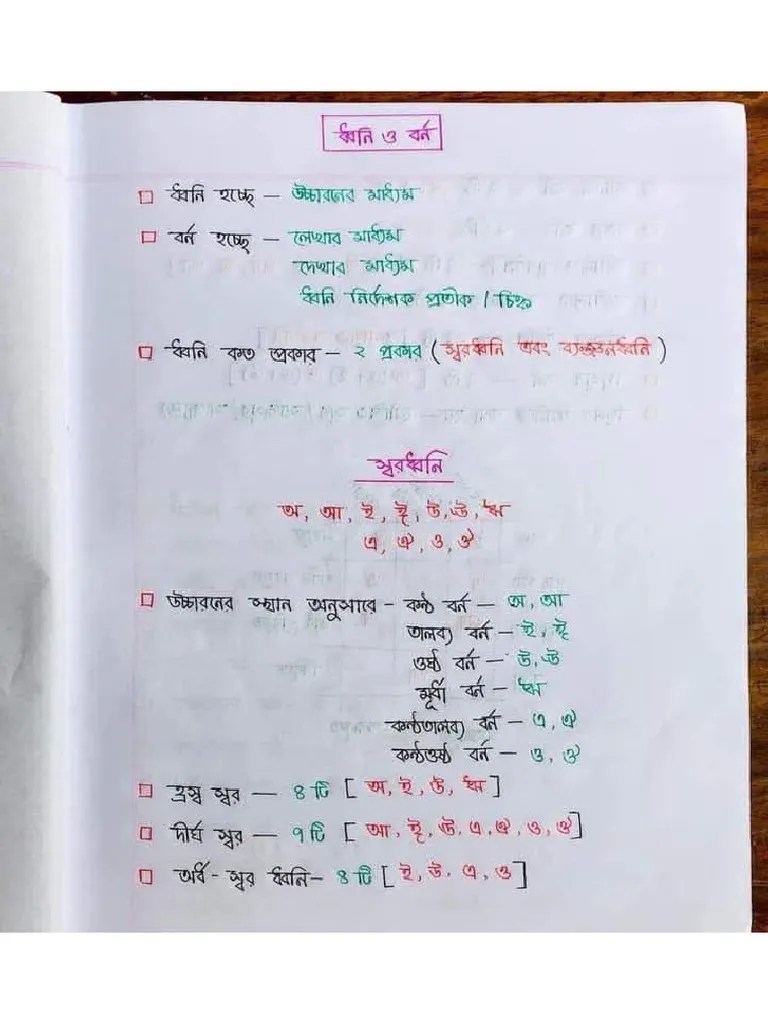 ধ্বনি ও বর্ন
ধ্বনি হচ্ছে – উচ্চারনের মাধ্যম
বর্ন হচ্ছে – লেখার মাধ্যম
দেখার মাধ্যম
ধ্বনি নির্দেশক প্রতীক / চিহ্ন
ধ্বনি কত প্রকার – ২ প্রকার ( স্বরধ্বনি এবং ব্যঞ্জনধ্বনি )
স্বরধ্বনি
অ, আ, ই, ঈ, উ, ঊ, ঋ
এ, ঐ, ও, ঔ
উচ্চারনের স্থান অনুসারে – কন্ঠ বর্ন – অ, আ
তালব্য বর্ন – ই, ঈ
ওষ্ঠ বর্ন – উ, ঊ
মূর্ধা বর্ন – ঋ
কন্ঠতালব্য বর্ন – এ, ঐ
কন্ঠওষ্ঠ বর্ন – ও, ঔ
হ্রস্ব স্বর – ৪ টি [ অ, ই, উ, ঋ ]
দীর্ঘ স্বর – ৭ টি [ আ, ঈ, ঊ, এ, ঐ, ও, ঔ ]
অর্ধ - স্বর ধ্বনি – ৪ টি [ ই, উ, এ, ও ]